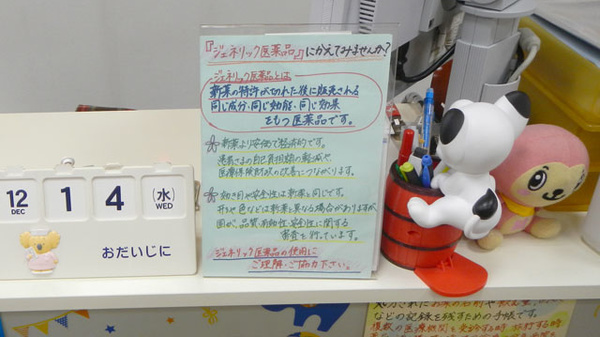 『ジェネリック医薬品』にかえてみませんか？
ジェネリック医薬品とは
新薬の特許が切れた後に販売される
同じ成分、同じ効能、同じ効果
をもつ医薬品です。
新薬より安価で経済的です。
患者さまの自己負担額の軽減や
医療保険財政の改善につながります。
効き目や安全性は新薬と同じです。
形や色などは新薬と異なる場合がありますが
国が、品質、有効性、安全性に関する
審査を行っています。
ジェネリック医薬品の使用に
ご理解・ご協力下さい。
12
DEC
1
4
(水)
WED
おだいじに
などの記録を残すための手帳です。
複数の医療機関を受診する時